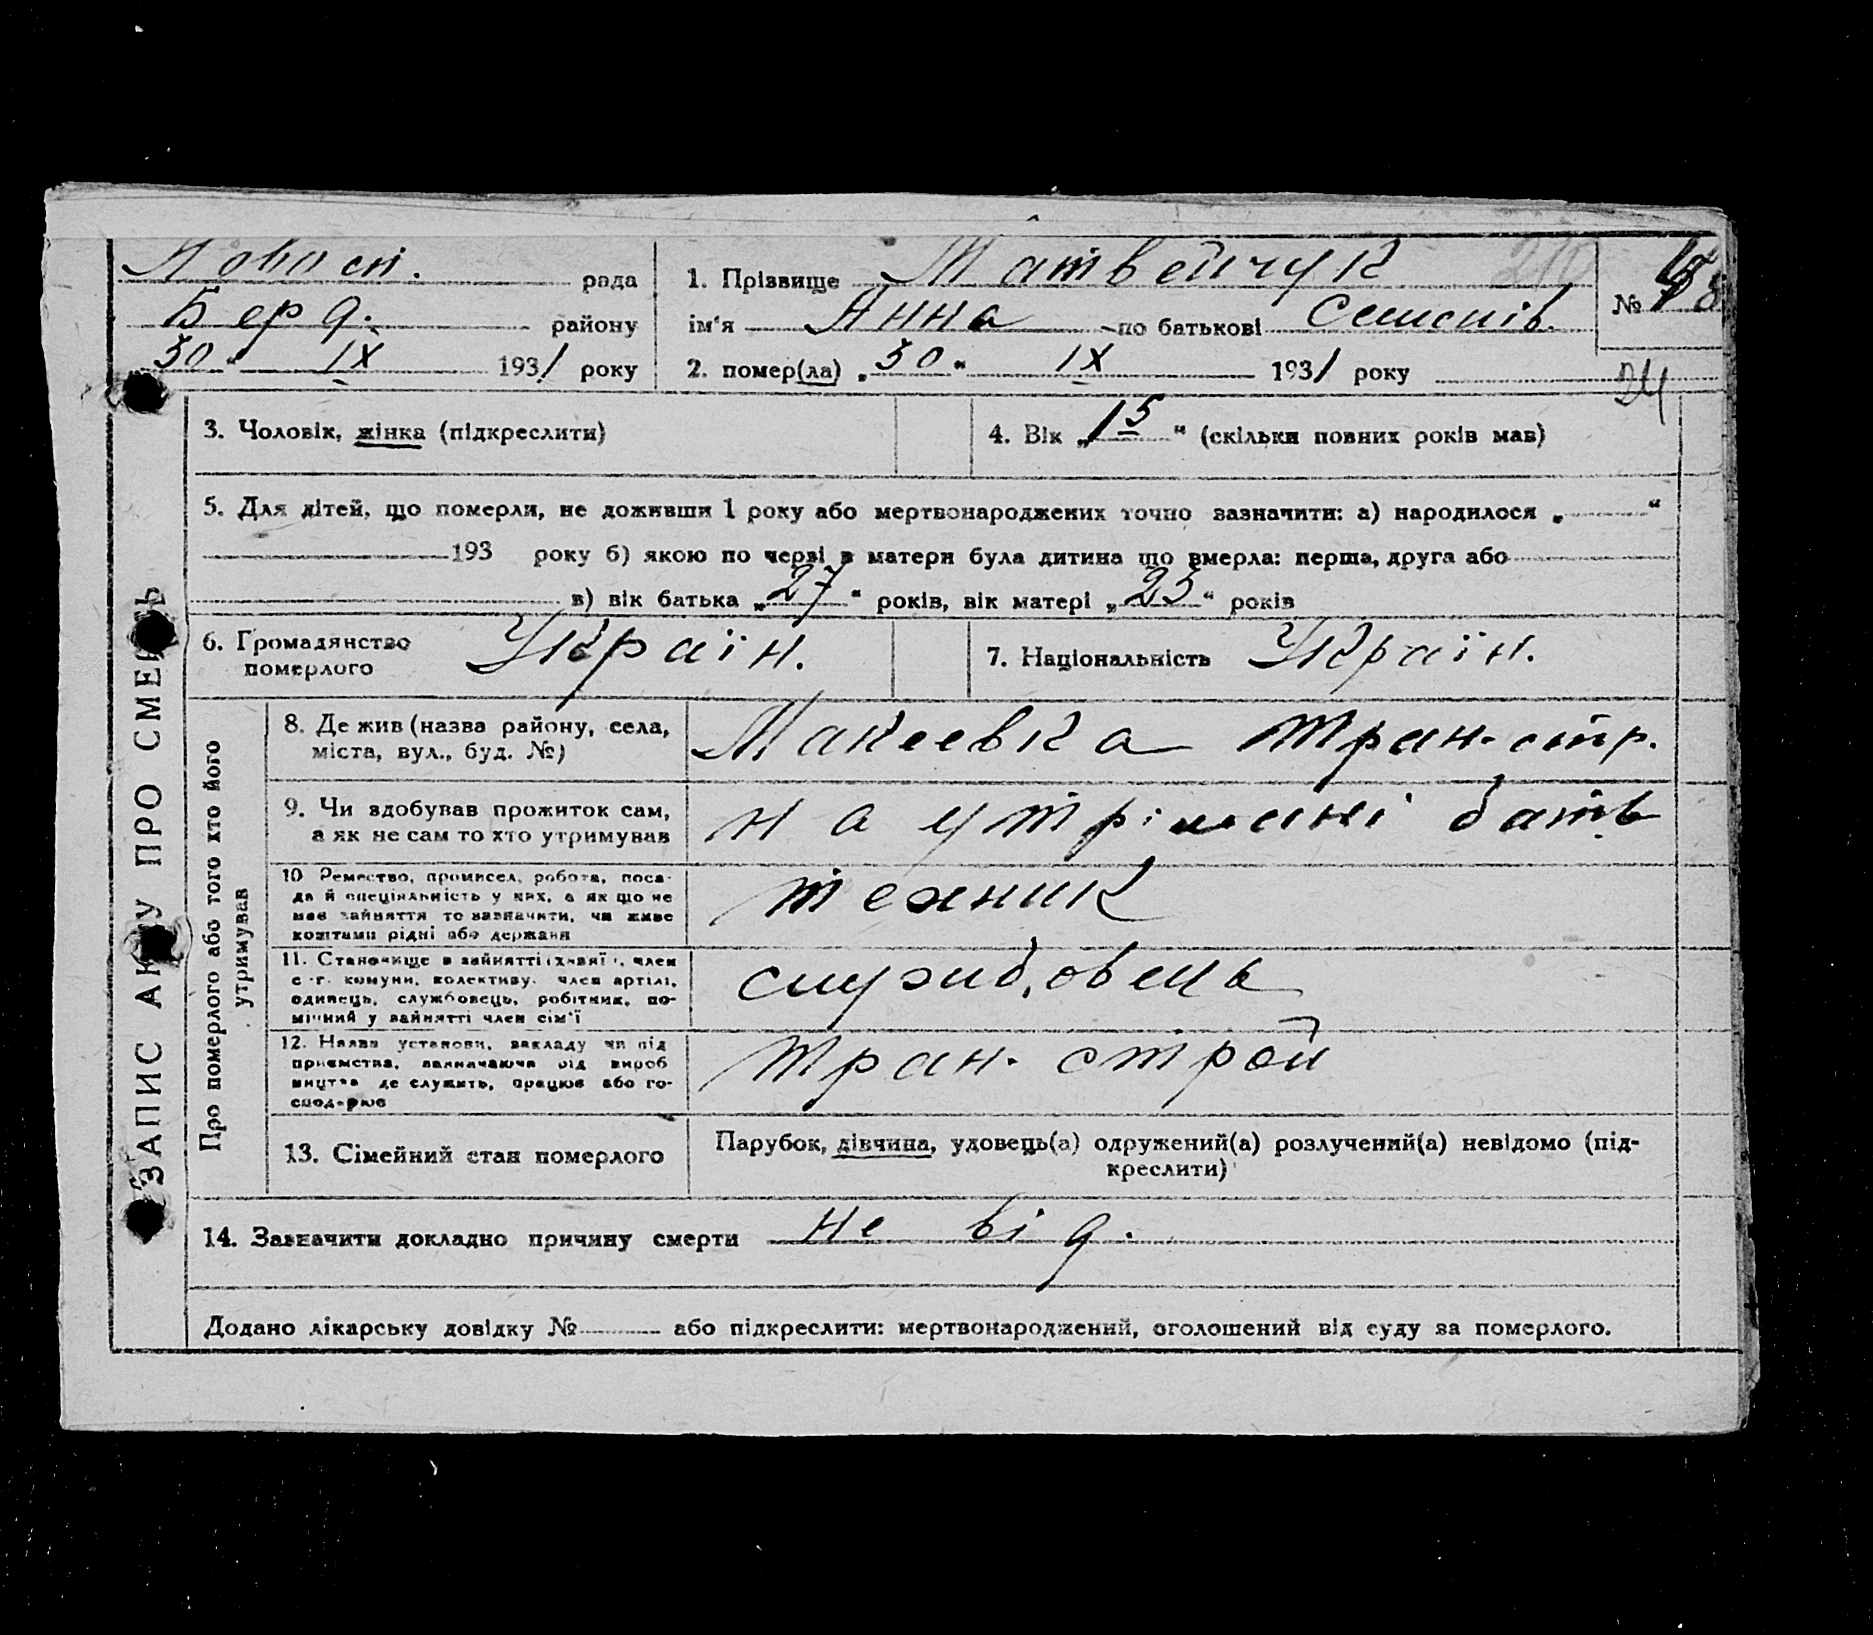 рада
Берд. району
30 " IX 1931 року
1. Прізвище Матвейчук 210
ім'я Анна по батькові Семенів.
2. помер(ла) „30" IX 1931 року
№
24
ЗАПИС АКТУ ПРО СМЕРТЬ
3. Чоловік, жінка (підкреслити)
4. Вік „15" (скільки повних років мав)
5. Для дітей, що померли, не доживши 1 року або мертвонароджених точно зазначити: а) народилося „ "
193 року б) якою по черзі в матери була дитина що вмерла: перша, друга або
в) вік батька „27" років, вік матері „25" років
6. Громадянство
померлого Україн.
7. Національність Україн.
Про померлого або того хто його
утримував
8. Де жив (назва району, села,
міста, вул., буд. №) Макеевка Тран-стр.
9. Чи здобував прожиток сам,
а як не сам то хто утримував на утрімані батьв
10 Ремество, промисел, робота, поса-
да й спеціяльність у них, а як що не
мав зайняття то зазначити, чи живе
коштами рідні або держави технік
11. Становище в зайнятті (хазяї , член
с.-г. комуни, колективу, член артілі,
одинець, службовець, робітник, по-
мічний у зайнятті член сім'ї службовець
12. Назва установи, закладу чи під
приємства, зазначаючи рід вироб
ництва де служить, працює або го-
сподарює Тран-строй
13. Сімейний стан померлого
Парубок, дівчина, удовець(а) одружений(а) розлучений(а) невідомо (під-
креслити)
14. Зазначити докладно причину смерти не від.
Додано лікарську довідку № або підкреслити: мертвонароджений, оголошений від суду за померлого.